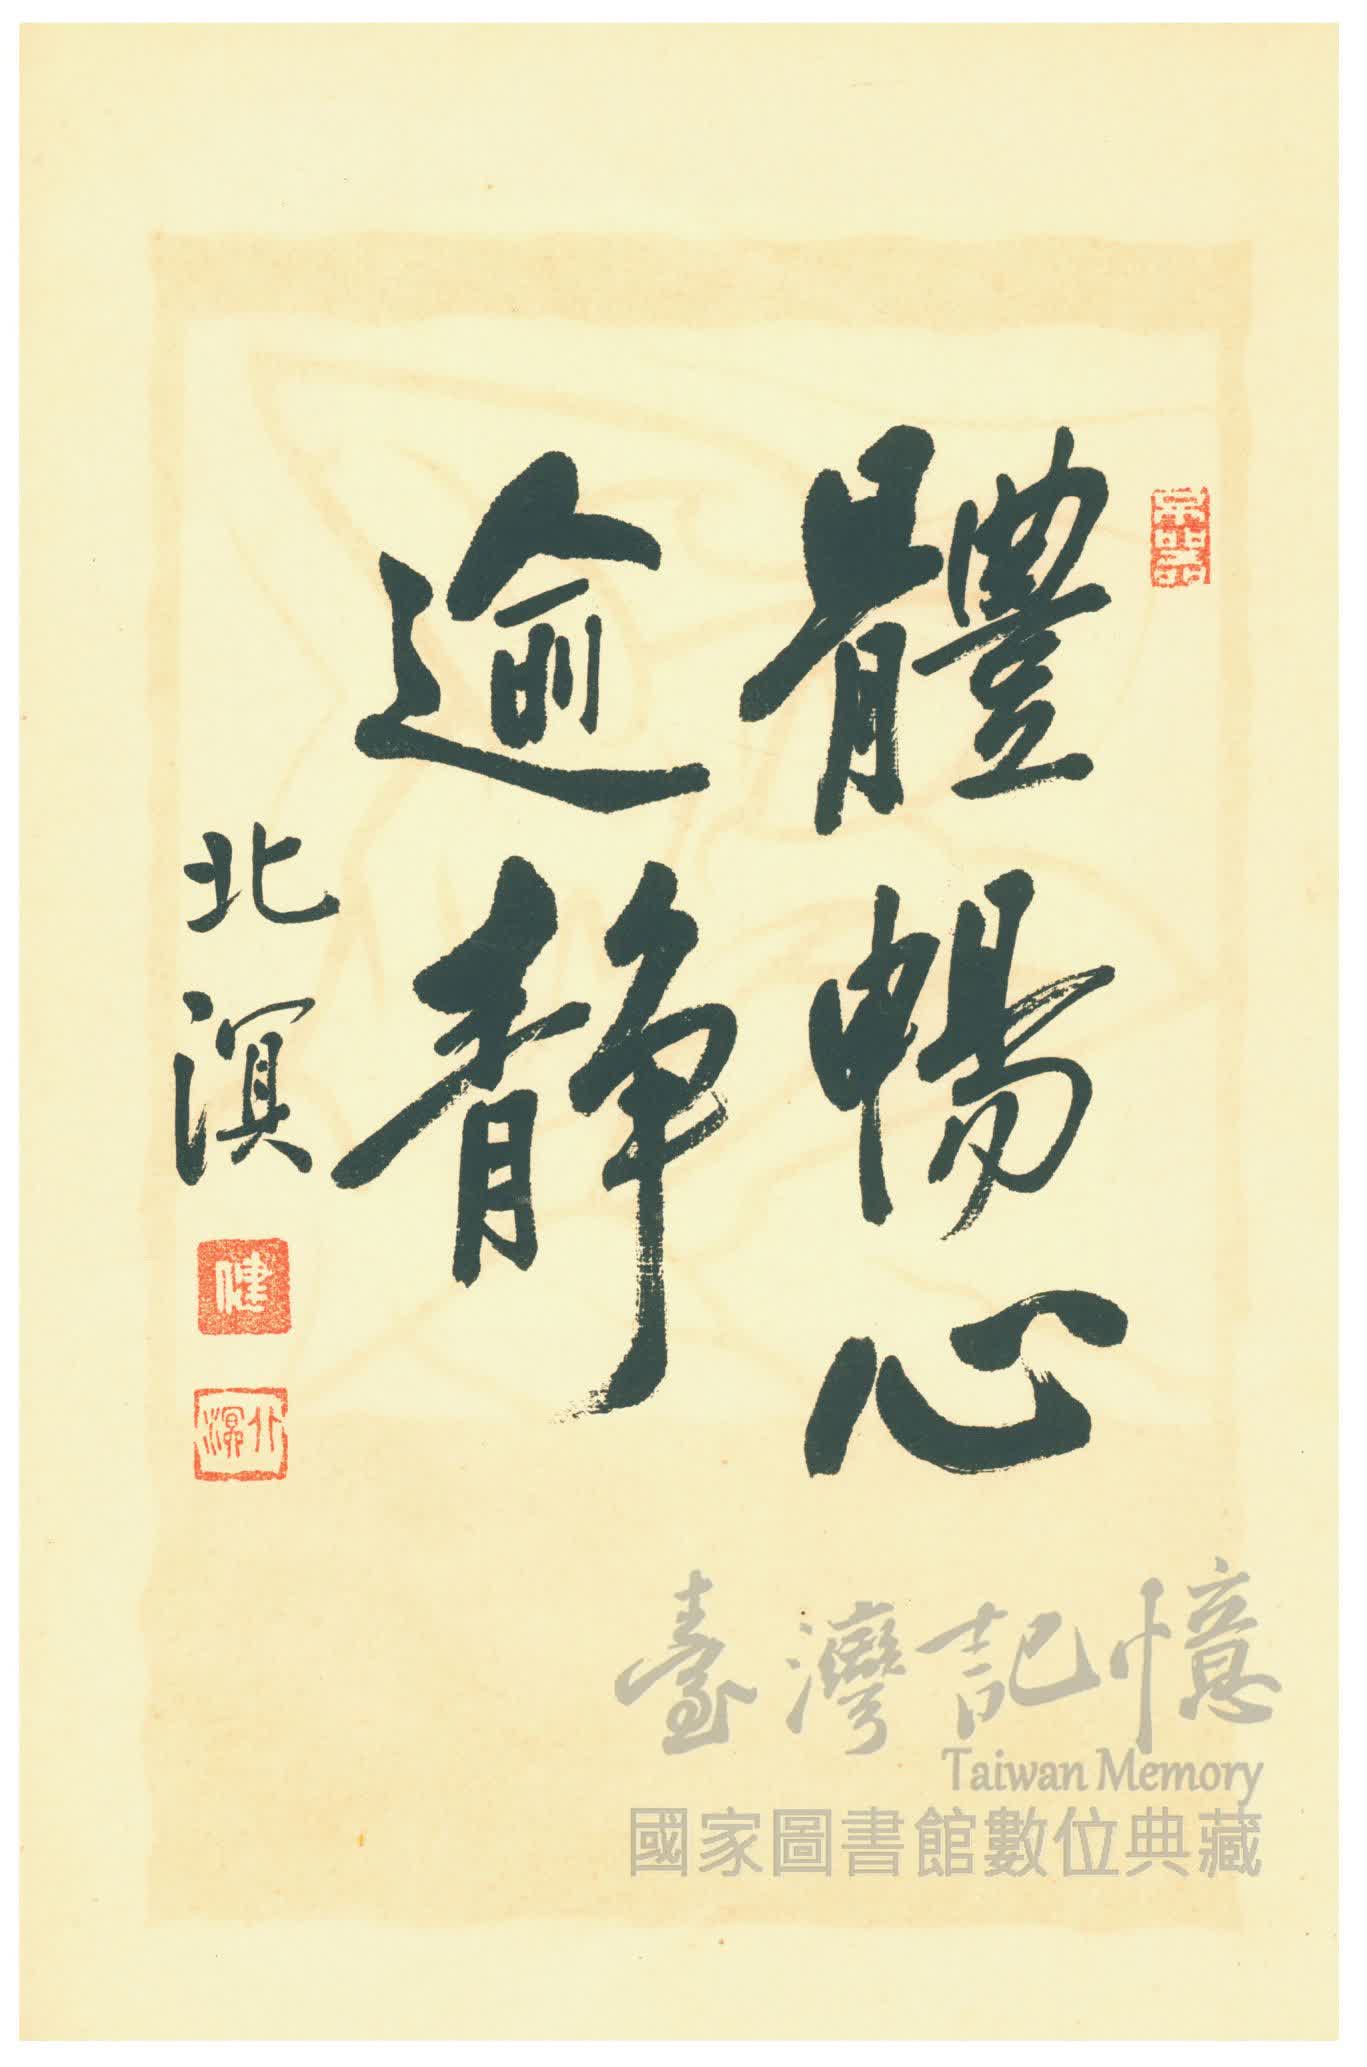 體暢心
逾靜
北溟
健
北溟
臺灣記憶
Taiwan Memory
國家圖書館數位典藏